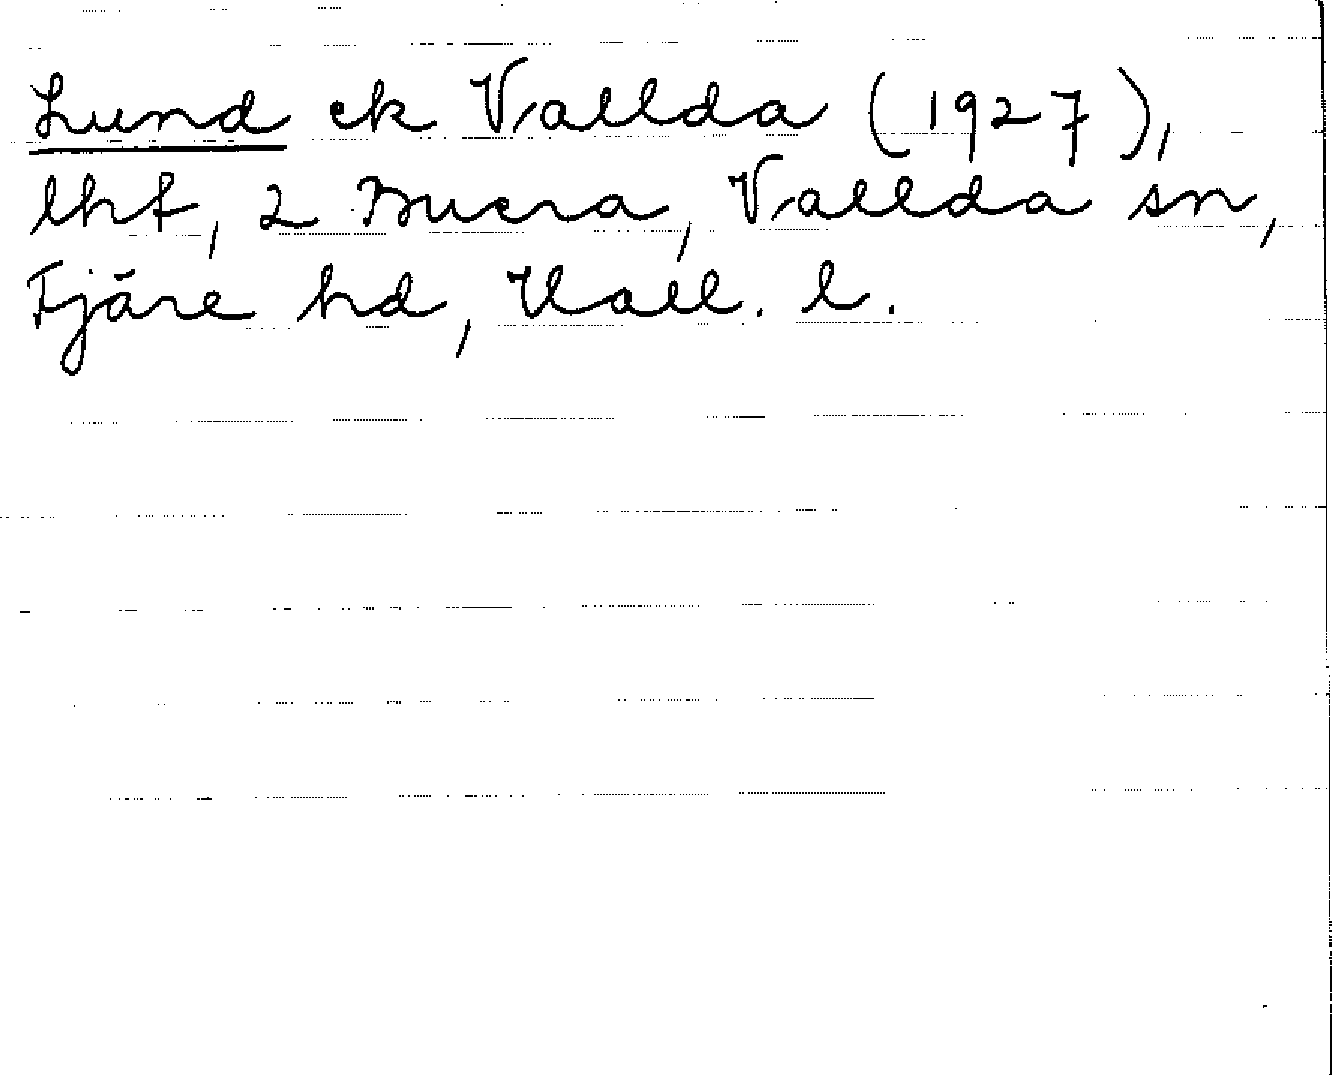 Lund ek Vallda (1927),
lht, 2 Buera, Vallda sn,
Fjäre hd, Hall. l.